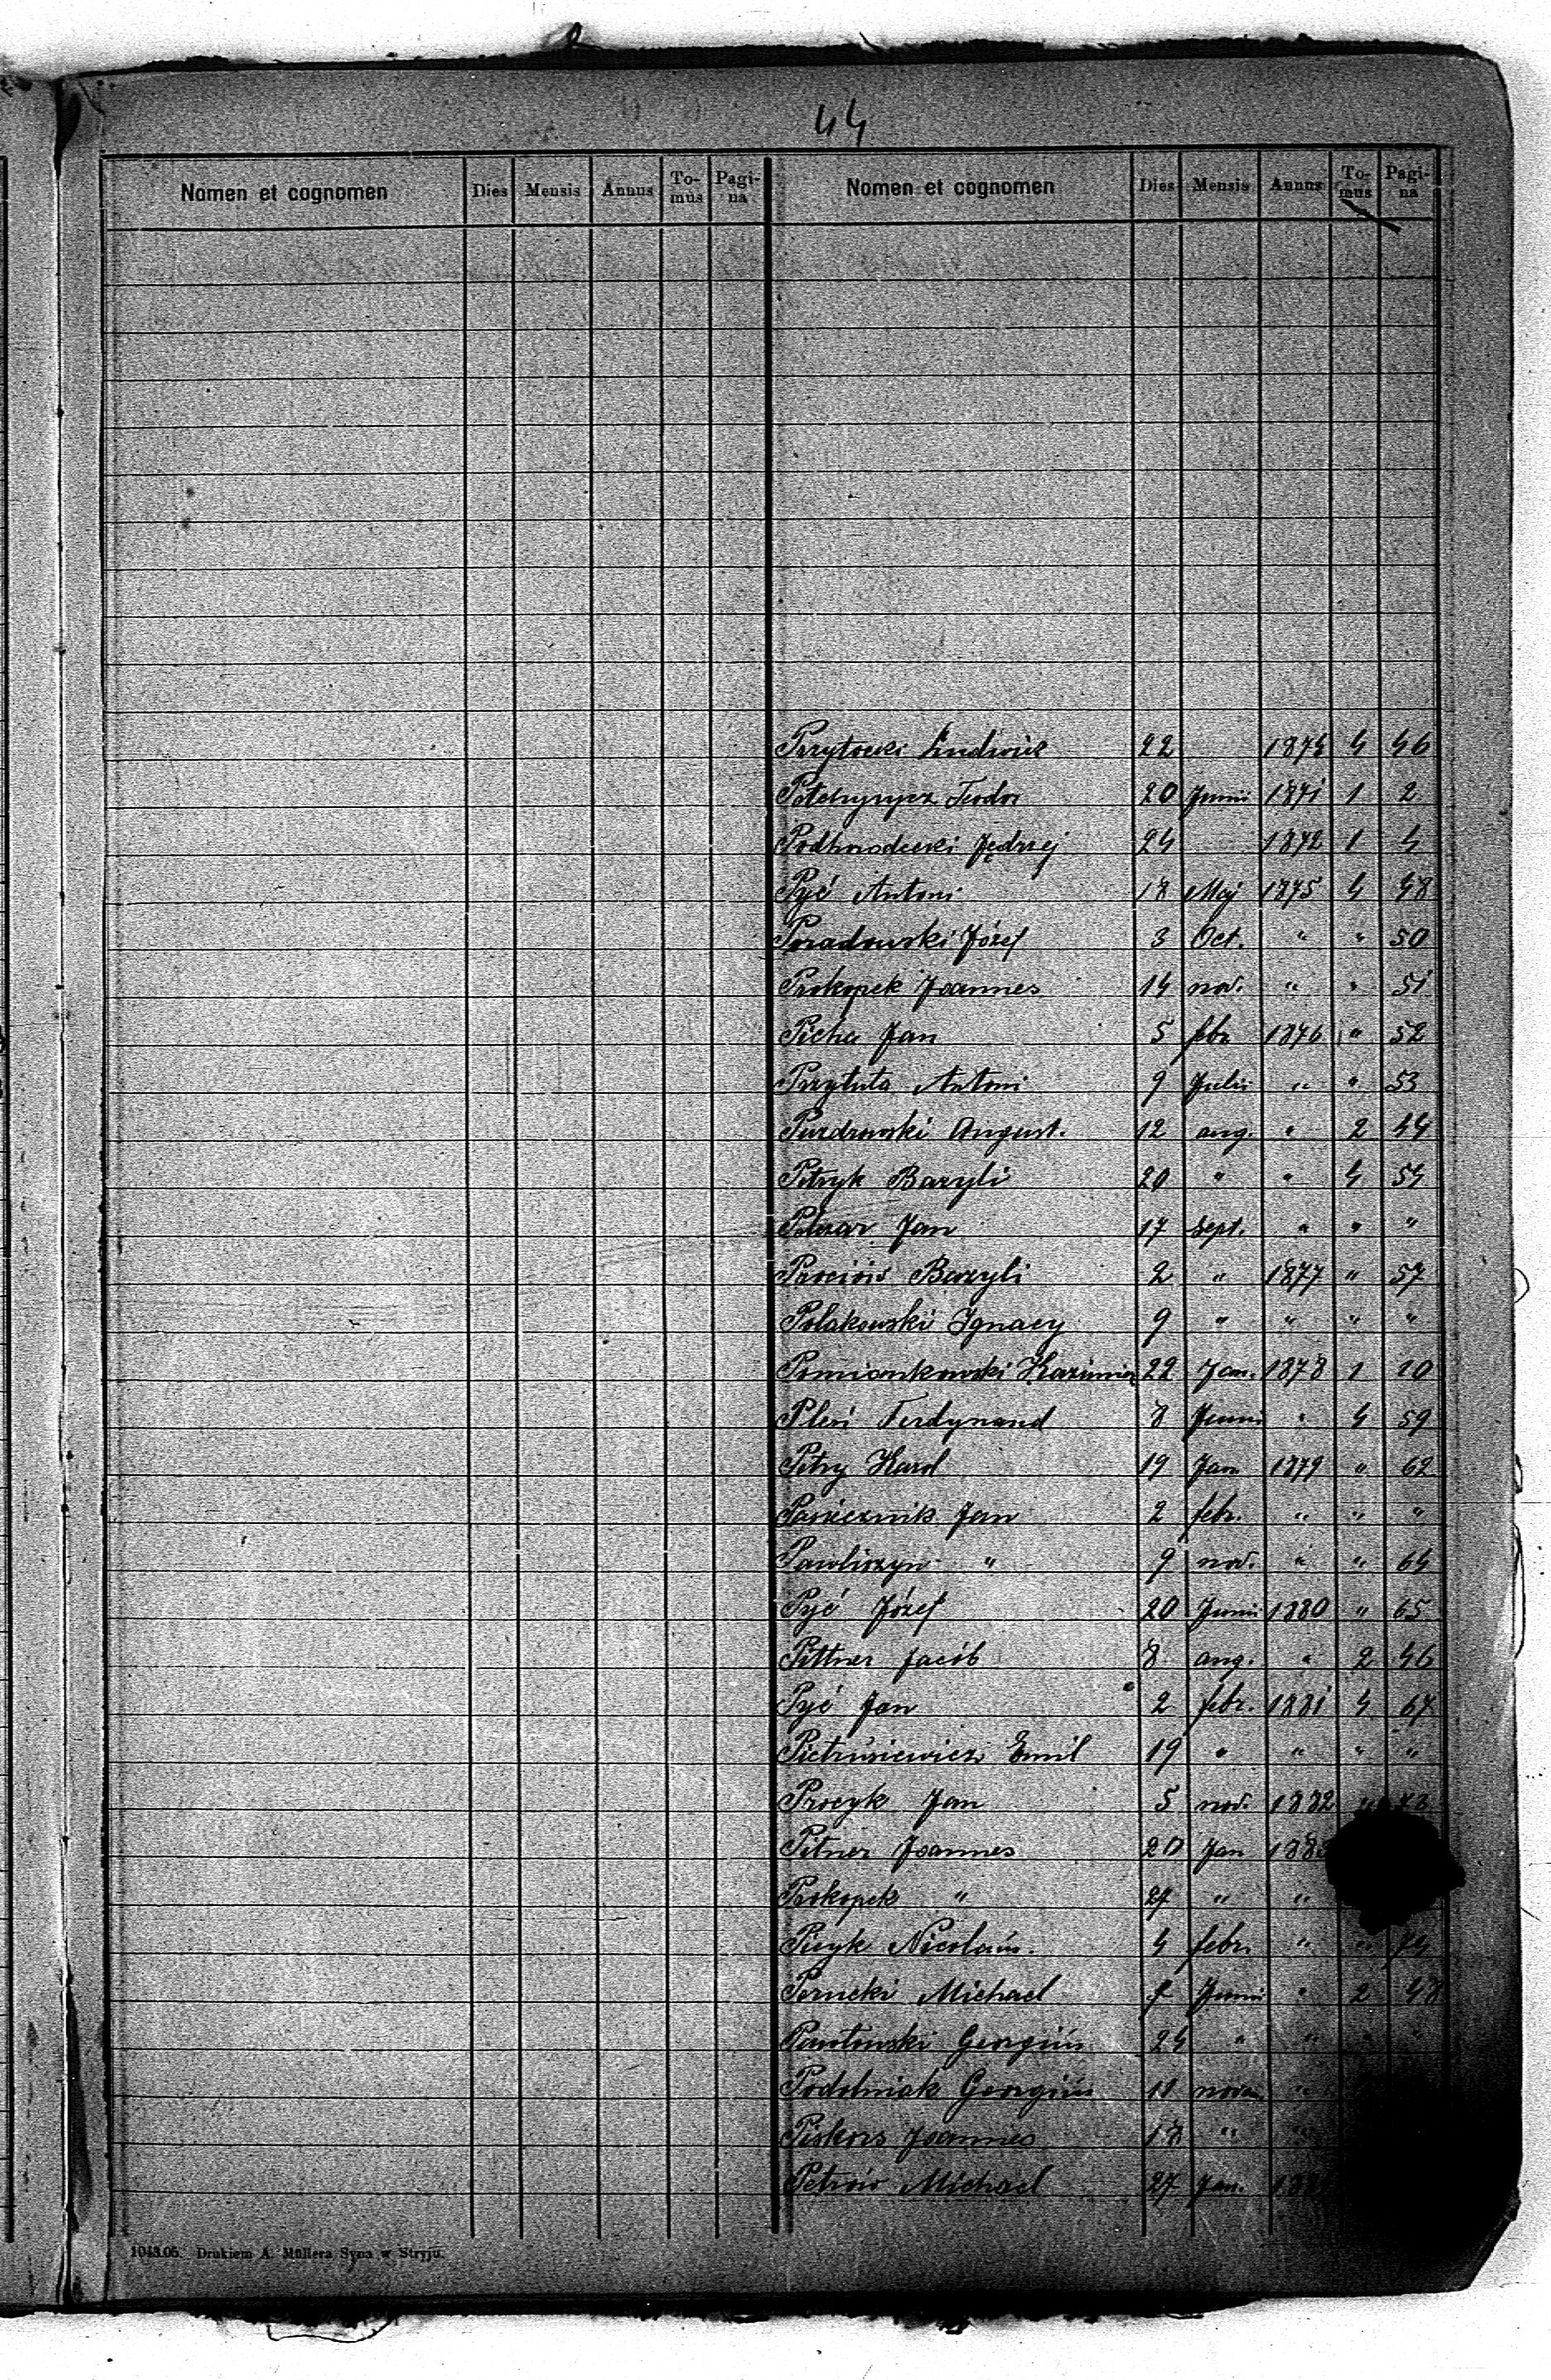 44
Nomen et cognomen Dies Mensis Annus To-mus Pagi-na Nomen et cognomen Dies Mensis Annus To-mus Pagi-na
Przytocki Ludwik 22 1874 4 46
Potchyrycz Teodor 20 Junii 1871 1 2
Podhorodecki Jędrzej 24 1872 1 4
Pyć Antoni 18 Maj 1875 4 48
Poradowski Józef 3 Oct. " " 50
Prokopek Joannes 14 nov. " " 51
Picha Jan 5 febr 1876 " 52
Przytuła Antoni 9 Julii " " 53
August. 12 aug. " 2 44
Petryk Bazyli 20 " " 4 54
Jan 17 Sept. " " "
Prociów Bazyli 2 " 1877 " 57
Polakowski Ignacy 9 " " " "
Pomiankowski Kazimierz 22 Jan. 1878 1 10
Ferdynand 8 Junii " 4 59
Petry Karol 19 Jan 1879 " 62
Pasiecznik Jan 2 febr. " " "
Pawliszyn " 9 nov. " " 64
Pyć Józef 20 Junii 1880 " 65
Pittner Jacób 8 aug. " 2 46
Pyć Jan 2 febr. 1881 4 67
Pietrusiewicz Emil 19 " " " "
Procyk Jan 5 nov. 1882 " 73
Pitner Joannes 20 Jan 188
Prokopek " 27 " "
Nicolaus. 4 febr. " " 74
Michael 7 Junii " 2 48
Pawłowski Georgius 24 " " "
Podolniak Georgius 11 novem "
Piskors Joannes 18 " "
Petrów Michael 27 Jan. 188
1043.05. Drukiem A. Müllera Syna w Stryju.